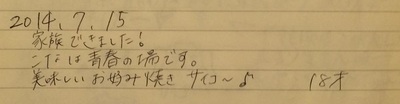 2014.7.15
家族できました!
こなは青春の場です。
美味しいお好み焼き サイコ〜♪ 18才